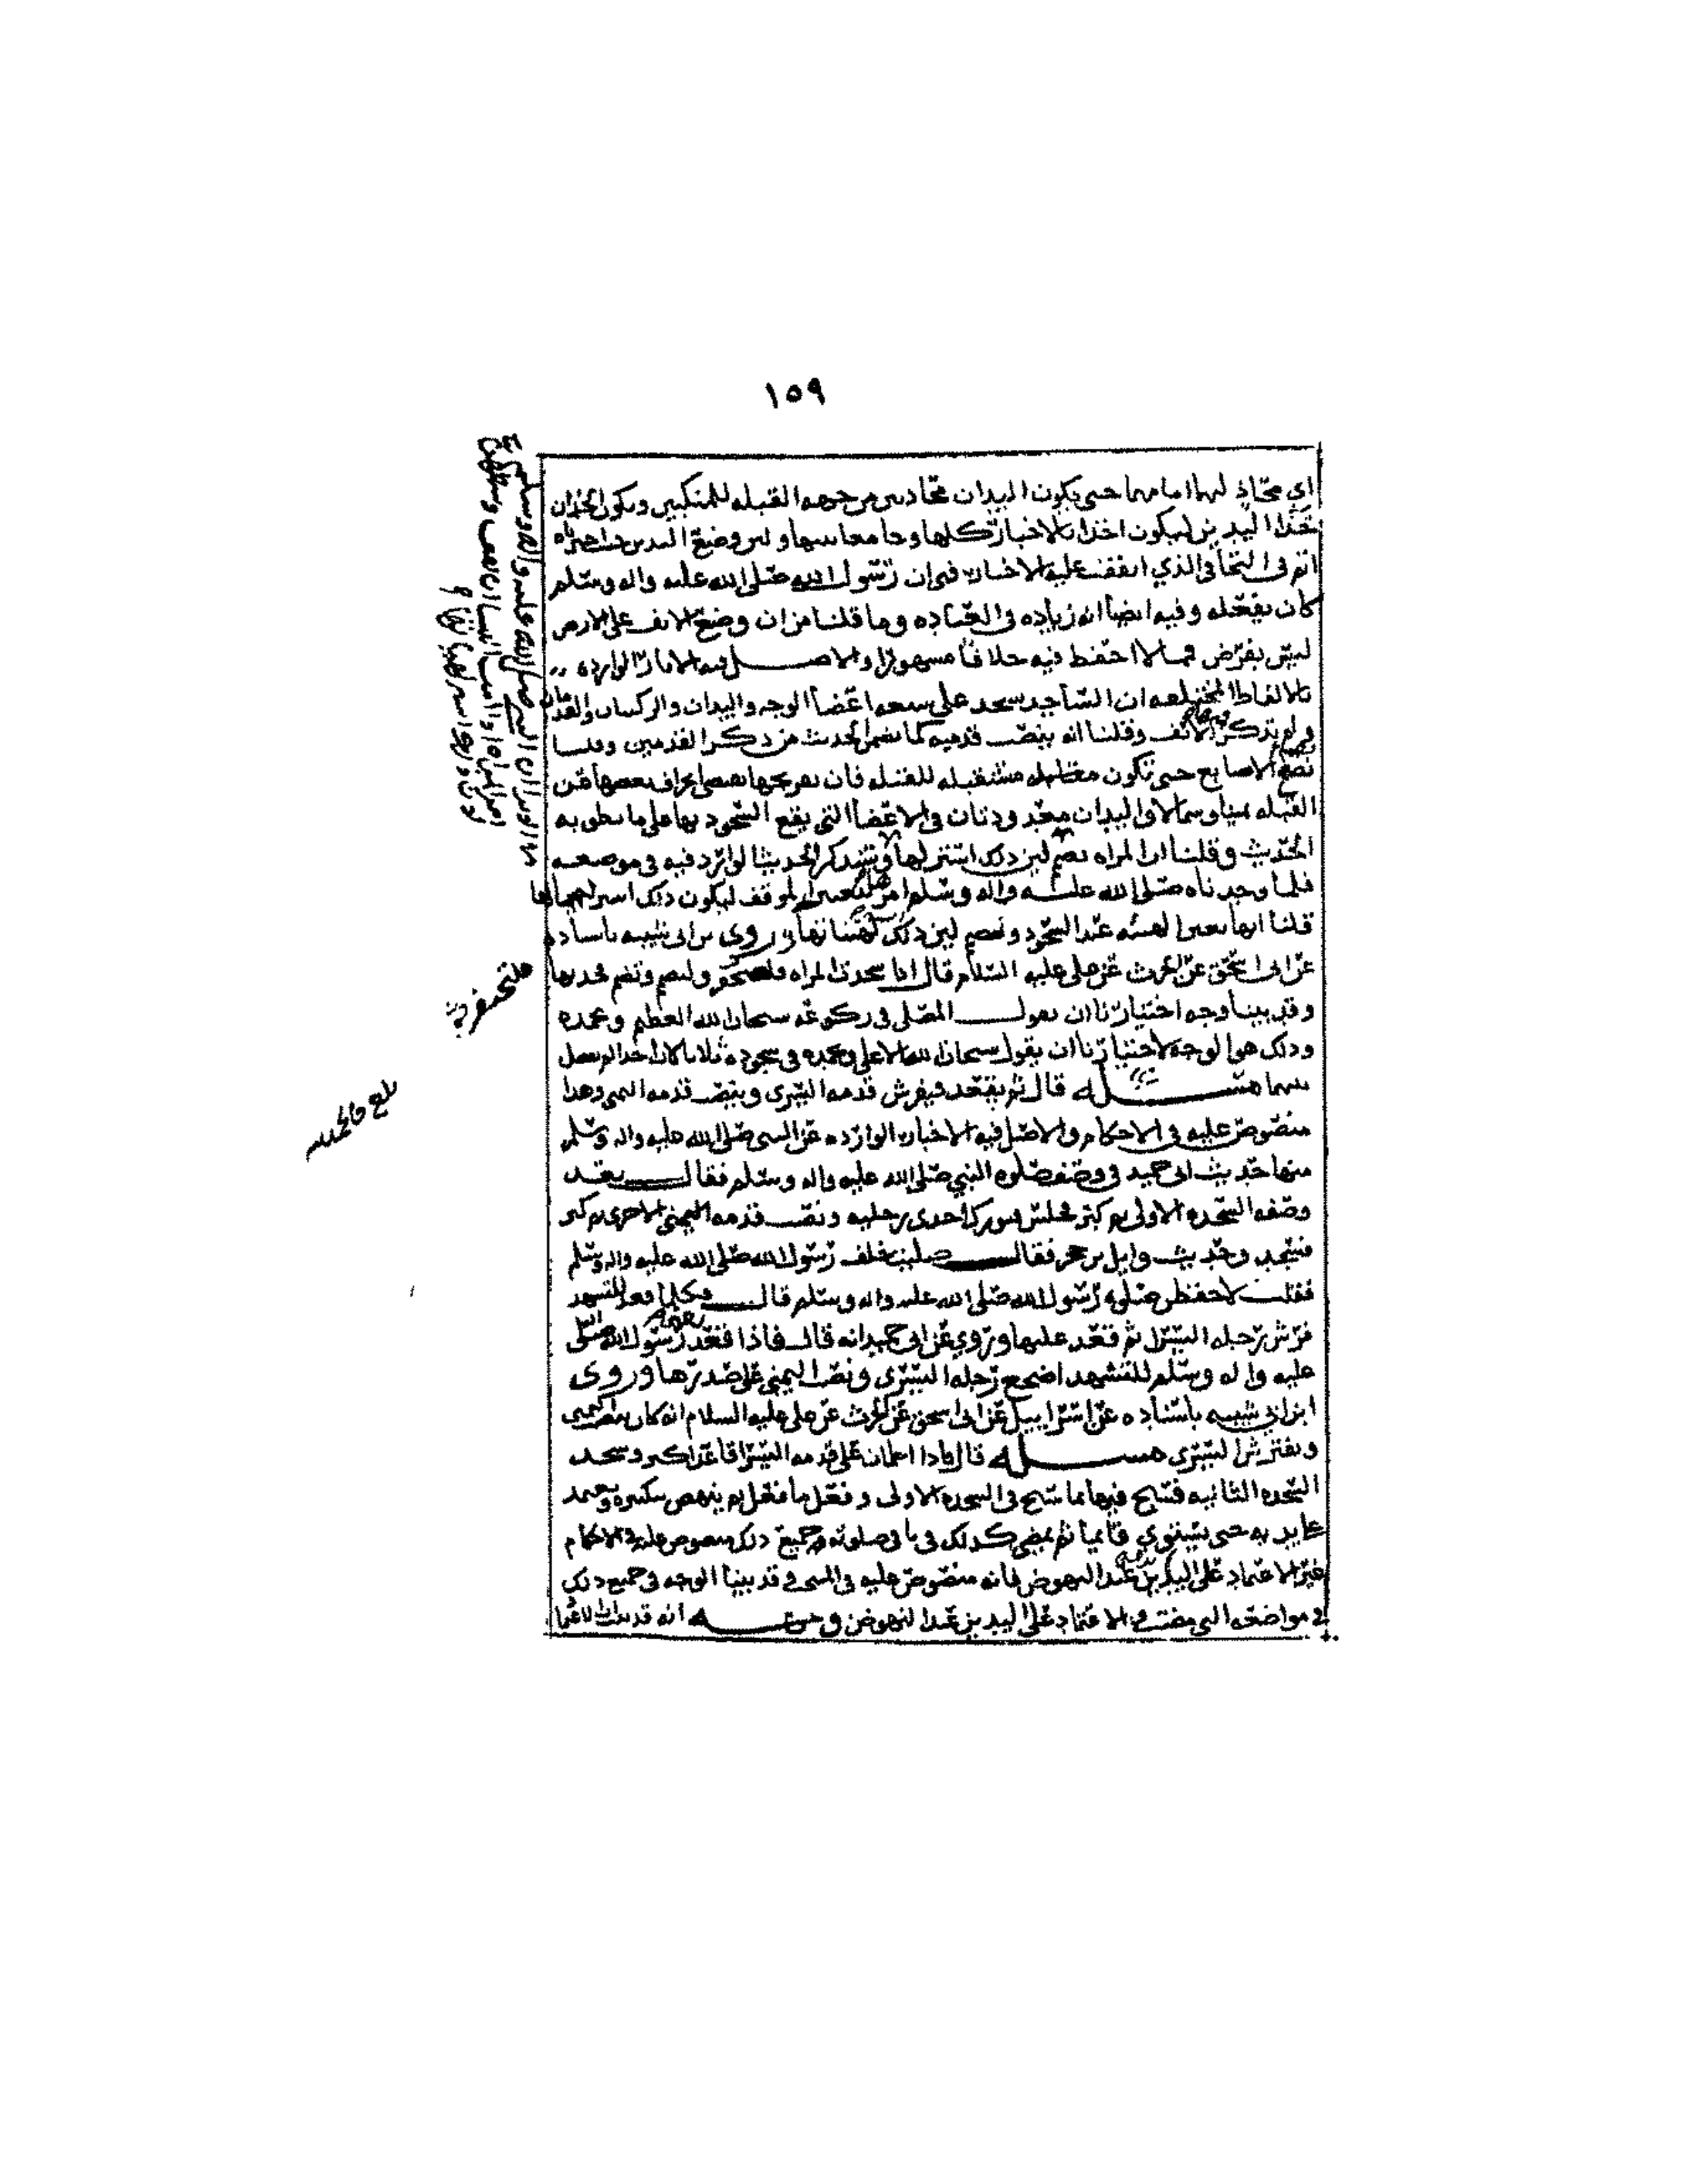 ١٥٩
اي محاذ لهما امامهما حتى يكون اليدان محاذيين من جهه القبله للمنكبين ويكون الخدان
حذا اليدين ليكون اخذا بالاخبار كلها وجامعا بينها ولان وضع اليدين
اتم في التجافي الذي اتفقت عليه الاخبار في ان رسول الله صلى الله عليه واله وسلم
كان يفعله وفيه ايضا انه زياده في العباده وما قلنا من ان وضع الانف على الارض
ليس بفرض فمما لا احفظ فيه خلافا مشهورا والاصل فيه الاثار الوارده
بالالفاظ المختلفه ان الساجد يسجد على سبعه اعضا الوجه واليدان والركبتان والقدمان
ولم يذكر الانف وقلنا انه ينصب قدميه كما تضمن الحديث من ذكر القدمين وقلنا
الاصابع حتى تكون مستقبله للقبله فان تفريجها يقتضي انحراف بعضها عن
القبله يمينا وشمالا واليدان معدودتان في الاعضا التي يقع السجود بها على ما نطق به
الحديث وقلنا ان المراه تضم لان ذلك استر لها وسنذكر الحديث الوارد فيه في موضعه
فلما وجدناه صلى الله عليه واله وسلم امرهن بتغيير الموقف ليكون ذلك استر لهن
قلنا انها تغير الهيئه عند السجود وتضم لان ذلك وروى بن ابي شيبه باسناده
عن ابي اسحق عن الحرث عن علي عليه السلام قال اذا سجدت المراه فلتحتفز ولتضم فخديها
وقد بينا وجه اختيارنا ان يقول المصلي في ركوعه سبحان الله العظيم وبحمده
وذلك هو الوجه لاختيارنا ان يقول سبحان الله الاعلى وبحمده في سجوده ثلاثا كان احدا لم يفصل
بينهما مسئله قال ثم يقعد فيفرش قدمه اليسرى وينصب قدمه اليمنى وهذا
منصوص عليه في الاحكام والاصل فيه الاخبار الوارده عن النبي صلى الله عليه واله وسلم
منها حديث ابي حميد في وصف صلوه النبي صلى الله عليه واله وسلم فقال بعد
وصفه السجده الاولى ثم كبر فجلس فتورك احدى رجليه ونصب قدمه اليمنى الاخرى ثم كبر
فسجد وحديث وايل بن حجر فقال صليت خلف رسول الله صلى الله عليه واله وسلم
فقلت لاحفظن صلوه رسول الله صلى الله عليه واله وسلم قال فلما قعد للتشهد
فرش رجله اليسرى ثم قعد عليها وروي عن ابي حميد انه قال فاذا قعد رسول الله صلى الله
عليه واله وسلم للتشهد اضجع رجله اليسرى ونصب اليمنى على صدرها وروى
ابن ابي شيبه باسناده عن اسراييل عن ابي اسحق عن الحرث عن علي عليه السلام انه كان ينصب اليمنى
ويفترش اليسرى مسئله قال فاذا اطمان على قدمه اليسرى قاعدا كبر وسجد
السجده الثانيه فسبح فيها بما سبح في السجده الاولى وفعل ما فعل ثم ينهض بتكبيره ويعتمد
على يديه حتى يستوي قايما ثم يمضي كذلك في باقي صلوته وجميع ذلك منصوص عليه في الاحكام
غير الاعتماد على اليدين عند النهوض فانه منصوص عليه في المنتخب وقد بينا الوجه في جميع ذلك
في مواضعه التي مضت في الاعتماد على اليدين عند النهوض وجهه انه قد
بلغ